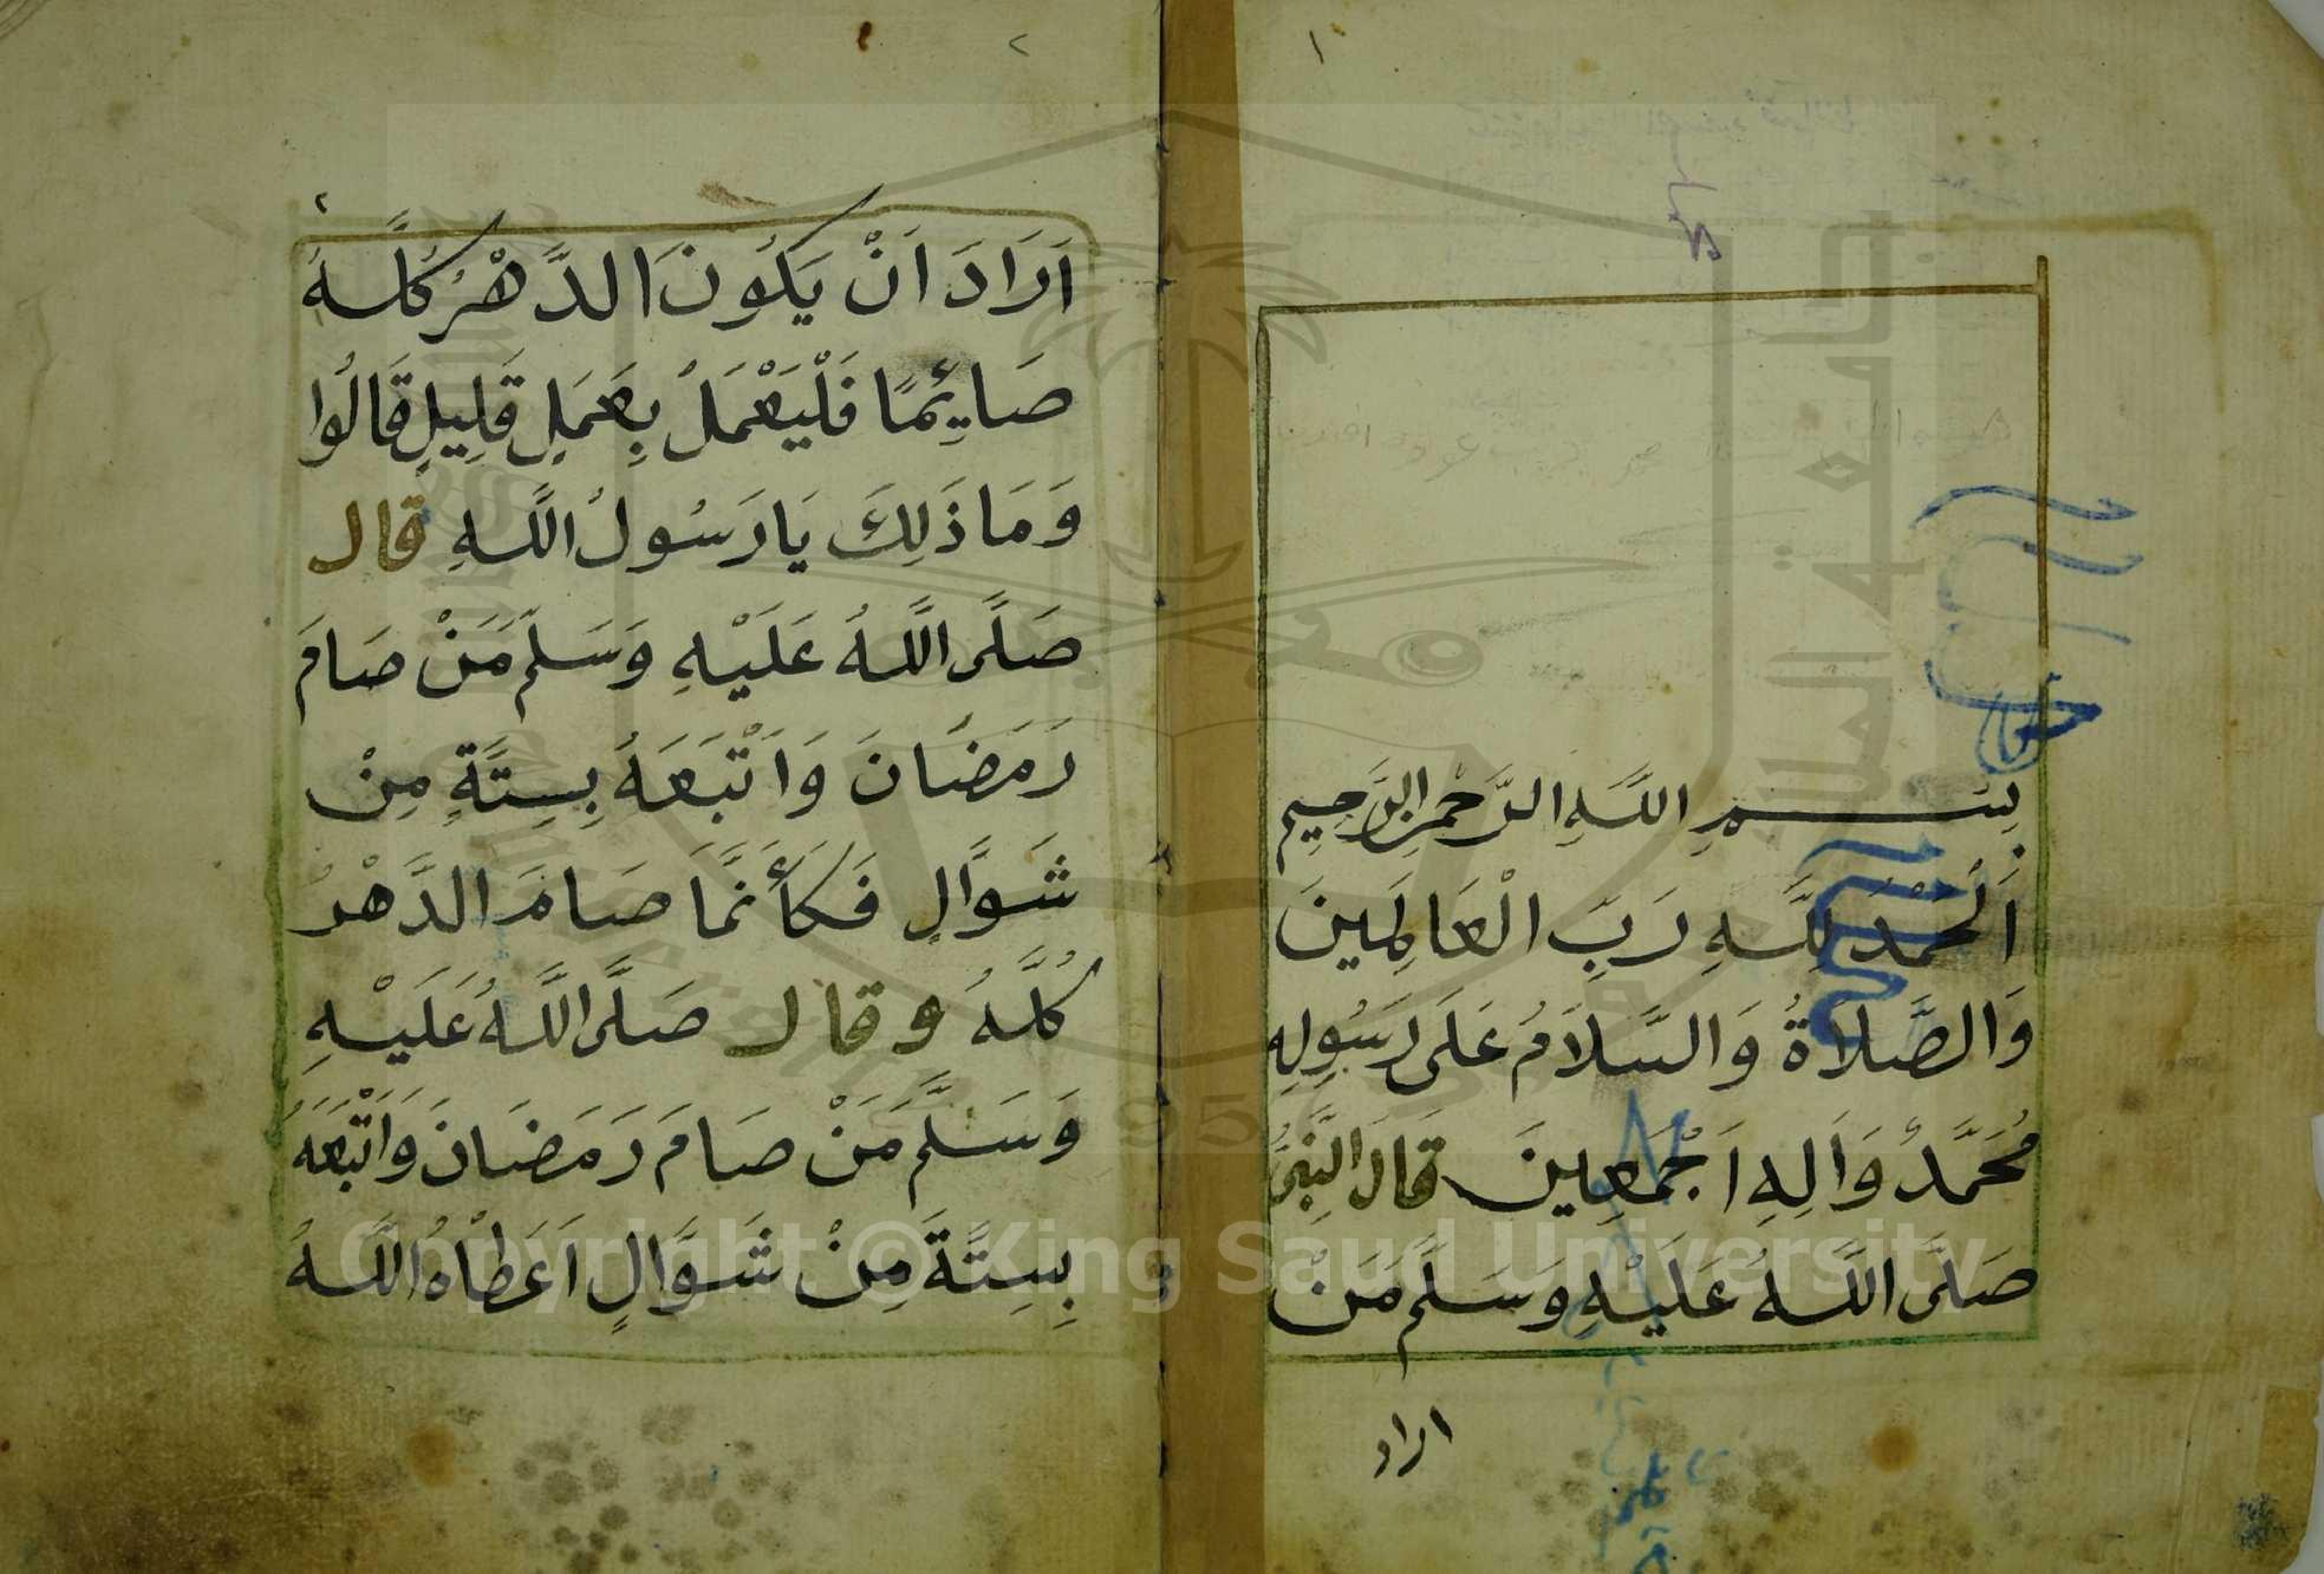 ١
بِسْمِ اللَّهِ الرَّحْمٰنِ الرَّحِيمِ
اَلْحَمْدُ لِلَّهِ رَبِّ الْعَالَمِينَ
وَالصَّلَاةُ وَالسَّلَامُ عَلَى رَسُولِهِ
مُحَمَّدْ وَاَلِهِ اَجْمَعِينَ قَالَ النَّبِىُّ
صَلَّى اللَّهُ عَلَيْهِ وَسَلَّمَ مَنْ
اراد
٢
٢
اَرَادَ اَنْ يَكُونَ الدَّهْرُ كُلَّهُ
صَائِمًا فَلْيَعْمَلْ بِعَمَلٍ قَلِيلٍ قَالُوا
وَمَا ذَلِكَ يَا رَسُولُ اللَّهِ قال
صَلَّى اللَّهُ عَلَيْهِ وَسَلَّمَ مَنْ صَامَ
رَمَضَانَ وَاَتْبَعَهُ بِسِتَّةٍ مِنْ
شَوَّالٍ فَكَأَنَّمَا صَامَ الدَّهْرُ
كُلَّهُ وقال صَلَّى اللَّهُ عَلَيْهِ
وَسَلَّمَ مَنْ صَامَ رَمَضَانَ وَاَتْبَعَهُ
بِسِتَّةَ مِنْ شَوَّالٍ اَعَطْاهُ اللَّهُ
جامعة الملك
Copyright © King Saud University